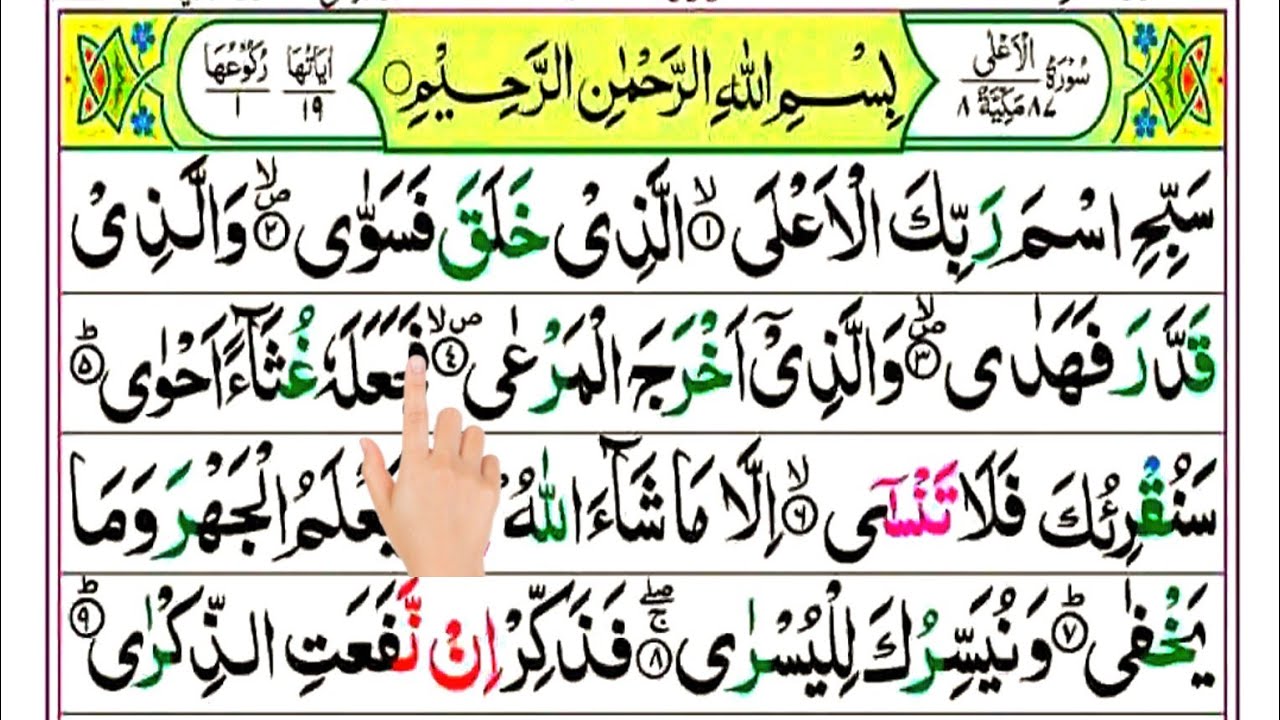 سُوْرَةُ الْاَعْلٰى ٨٧ مَكِّيَّةٌ ٨
بِسْمِ اللّٰهِ الرَّحْمٰنِ الرَّحِيْمِ
اٰيَاتُهَا ١٩ رُكُوْعُهَا ١
سَبِّحِ اسْمَ رَبِّكَ الْاَعْلَى ۙ۱ الَّذِىْ خَلَقَ فَسَوّٰى ۙ۲ وَالَّذِىْ
قَدَّرَ فَهَدٰى ۙ۳ وَالَّذِىْۤ اَخْرَجَ الْمَرْعٰى ۙ۴ فَجَعَلَهٗ غُثَآءً اَحْوٰى ؕ۵
سَنُقْرِئُكَ فَلَا تَنْسٰٓى ۙ۶ اِلَّا مَا شَآءَ اللّٰهُ يَعْلَمُ الْجَهْرَ وَمَا
يَخْفٰى ؕ۷ وَنُيَسِّرُكَ لِلْيُسْرٰى ۚۖ۸ فَذَكِّرْ اِنْ نَّفَعَتِ الذِّكْرٰى ؕ۹